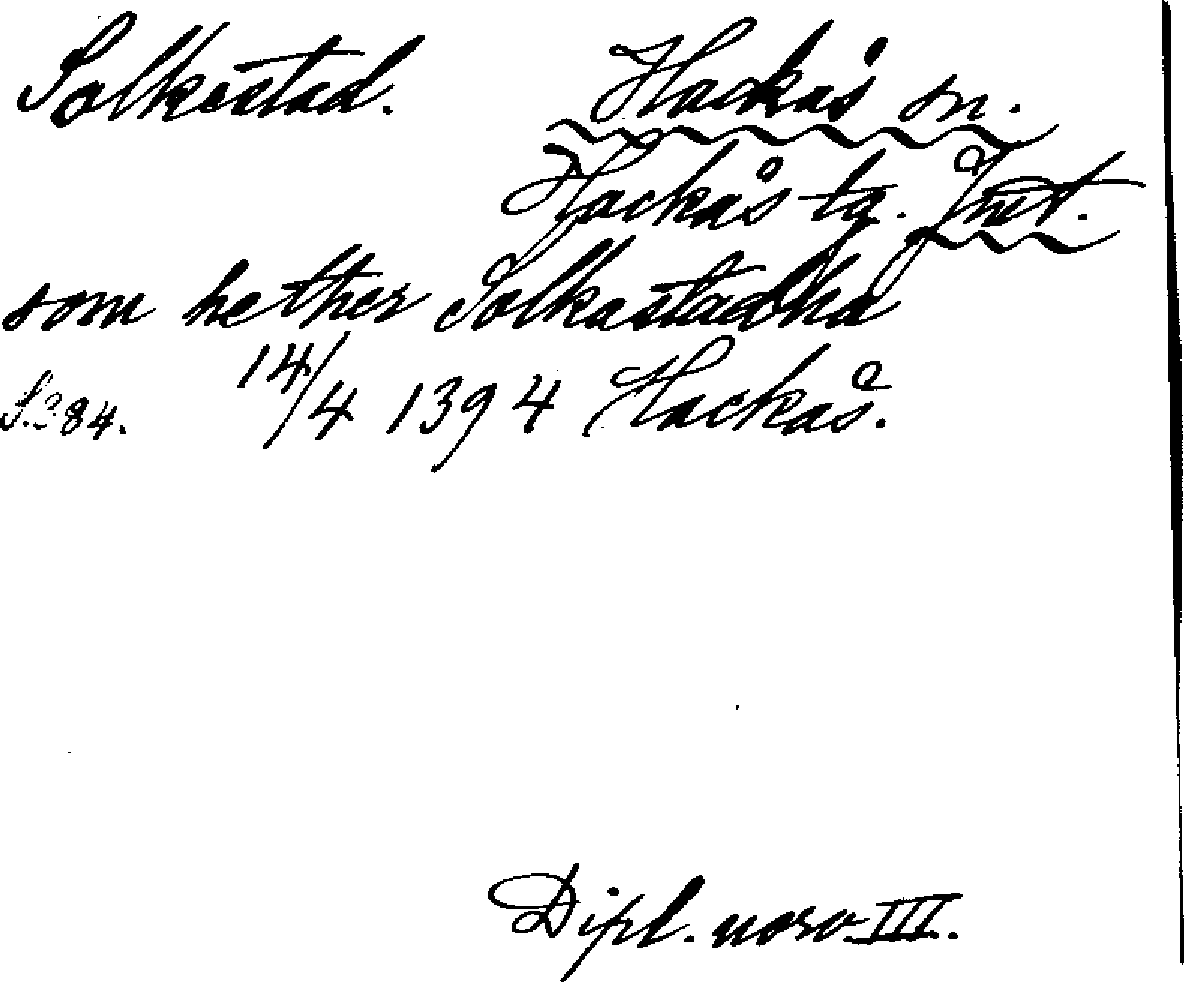 Solkestad. Hackås sn.
Hackås tg. Jmt.
som hether Solkastadha
S. 384. 14/4 1394 Hackås.
Dipl. norv. III.